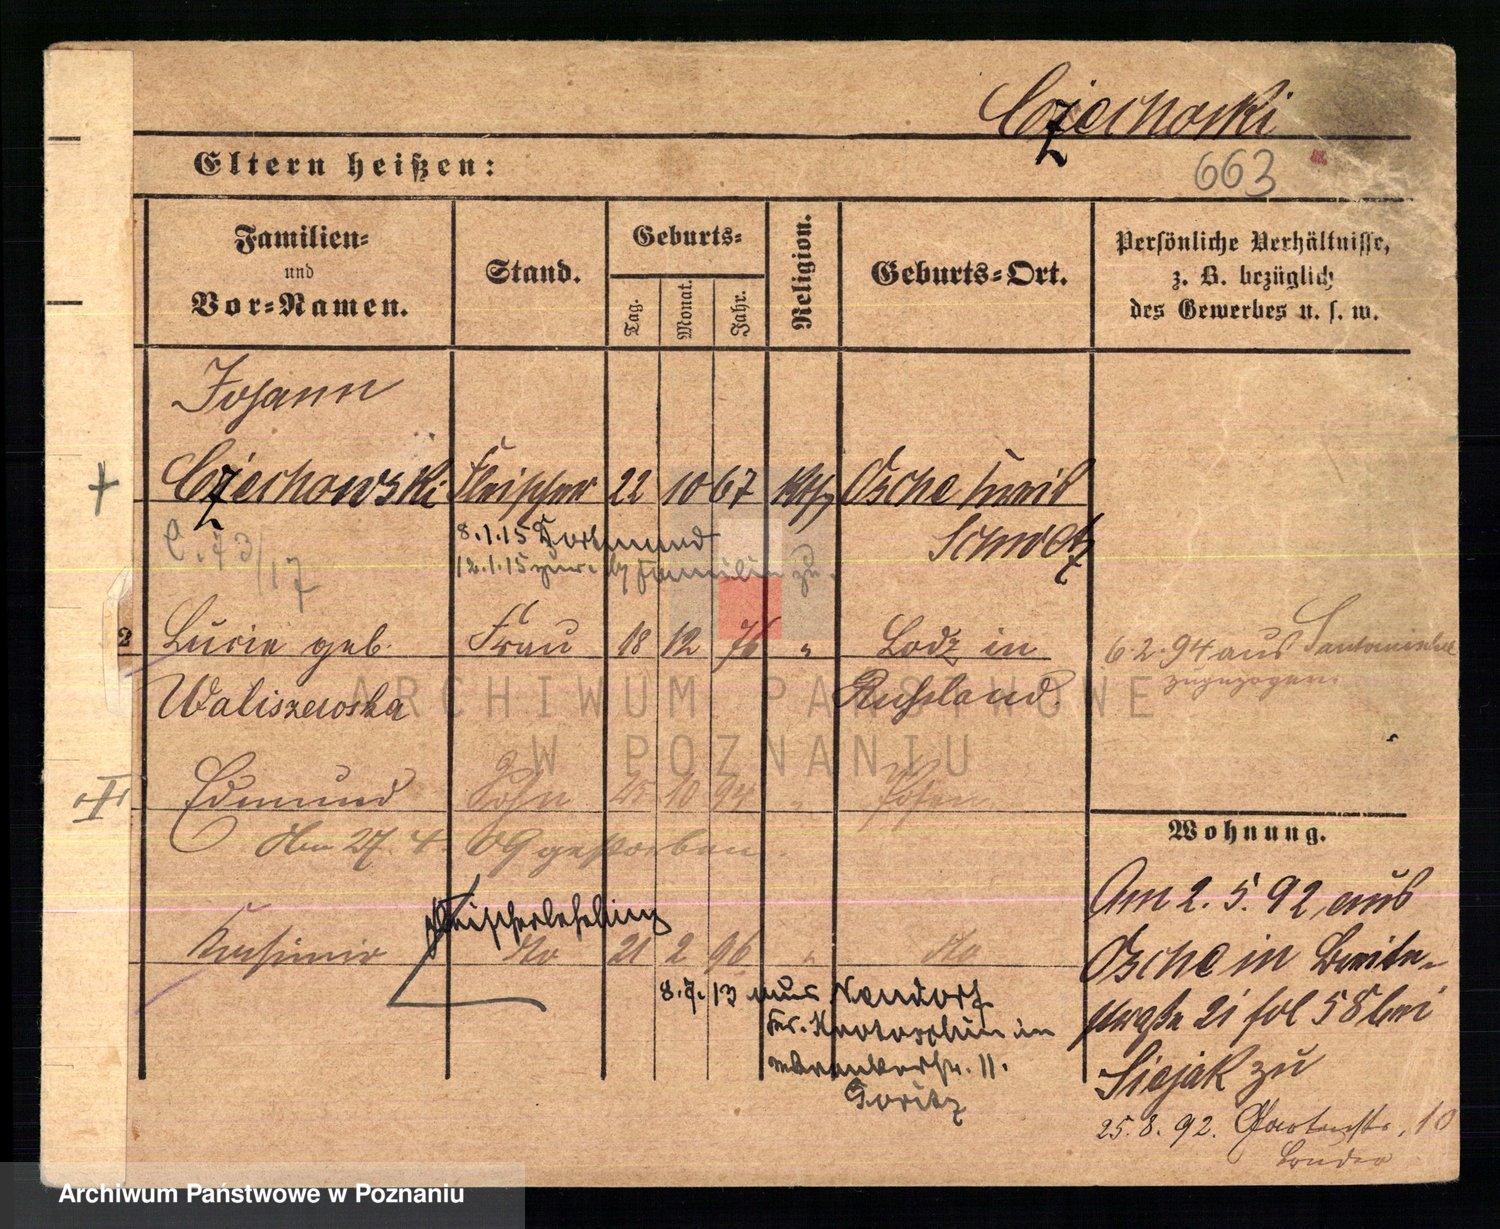 Czechoski
Eltern heißen:
663
Familien-
und
Vor-Namen.
Stand.
Geburts-
Tag.
Monat.
Jahr.
Religion.
Geburts-Ort.
Persönliche Verhältnisse,
z. B. bezüglich
des Gewerbes u. s. w.
Johann
Czechowski Fleischer 22 10 67 kath Osche Kreis
Schwetz
C. 73/17
8.1.15 Dortmund
12.1.15 zur. Familie zu.
2 Lucie geb. Frau 18 12 76 " Lodz in
Waliszewska Rußland.
6.2.94 aus
zugezogen.
Edmund Sohn 10 94 " Posen
Am 27. 4. 09 gestorben.
Fleischerlehrling
Kasimir do 21 2 96 " do
8.7.13 aus
Krs. Krotoschin in
11.
Goritz
Wohnung.
Am 2. 5. 92 aus
Osche in Breite-
straße 21 fol 58 bei
Siejak zu
25. 8. 92. Gartenstr. 10
ARCHIWUM PAŃSTWOWE
W POZNANIU
Archiwum Państwowe w Poznaniu